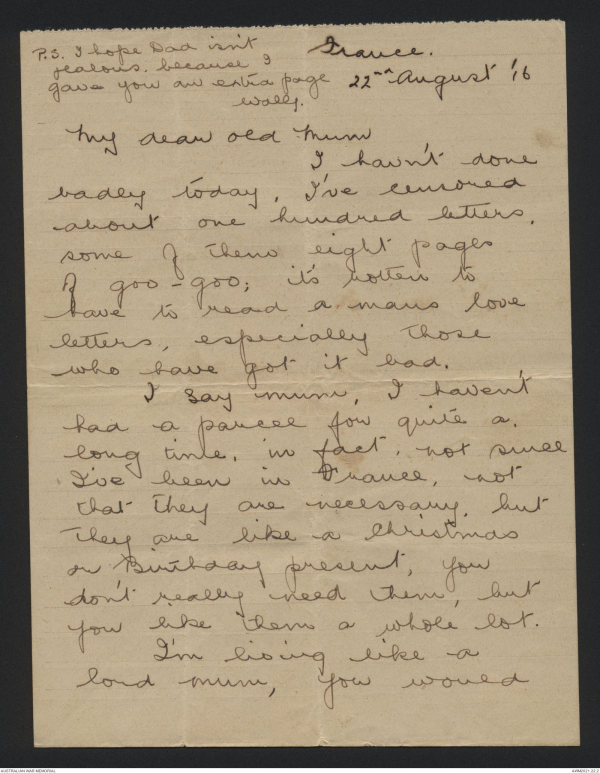 P.S. I hope Dad isn't
jealous. because I
gave you an extra page
Wally.
France.
22nd August '16
My dear old Mum
I hav'n't done
badly today, I've censored
about one hundred letters,
some of them eight pages
of goo-goo; it's rotten to
have to read a mans love
letters, especially those
who have got it bad.
I say mum, I haven't
had a parcel for quite a
long time, in fact, not since
I've been in France, not
that they are necessary, but
they are like a Christmas
or Birthday present, you
don't really need them, but
you like them a whole lot.
I'm living like a
lord mum, you would
AUSTRALIAN WAR MEMORIAL